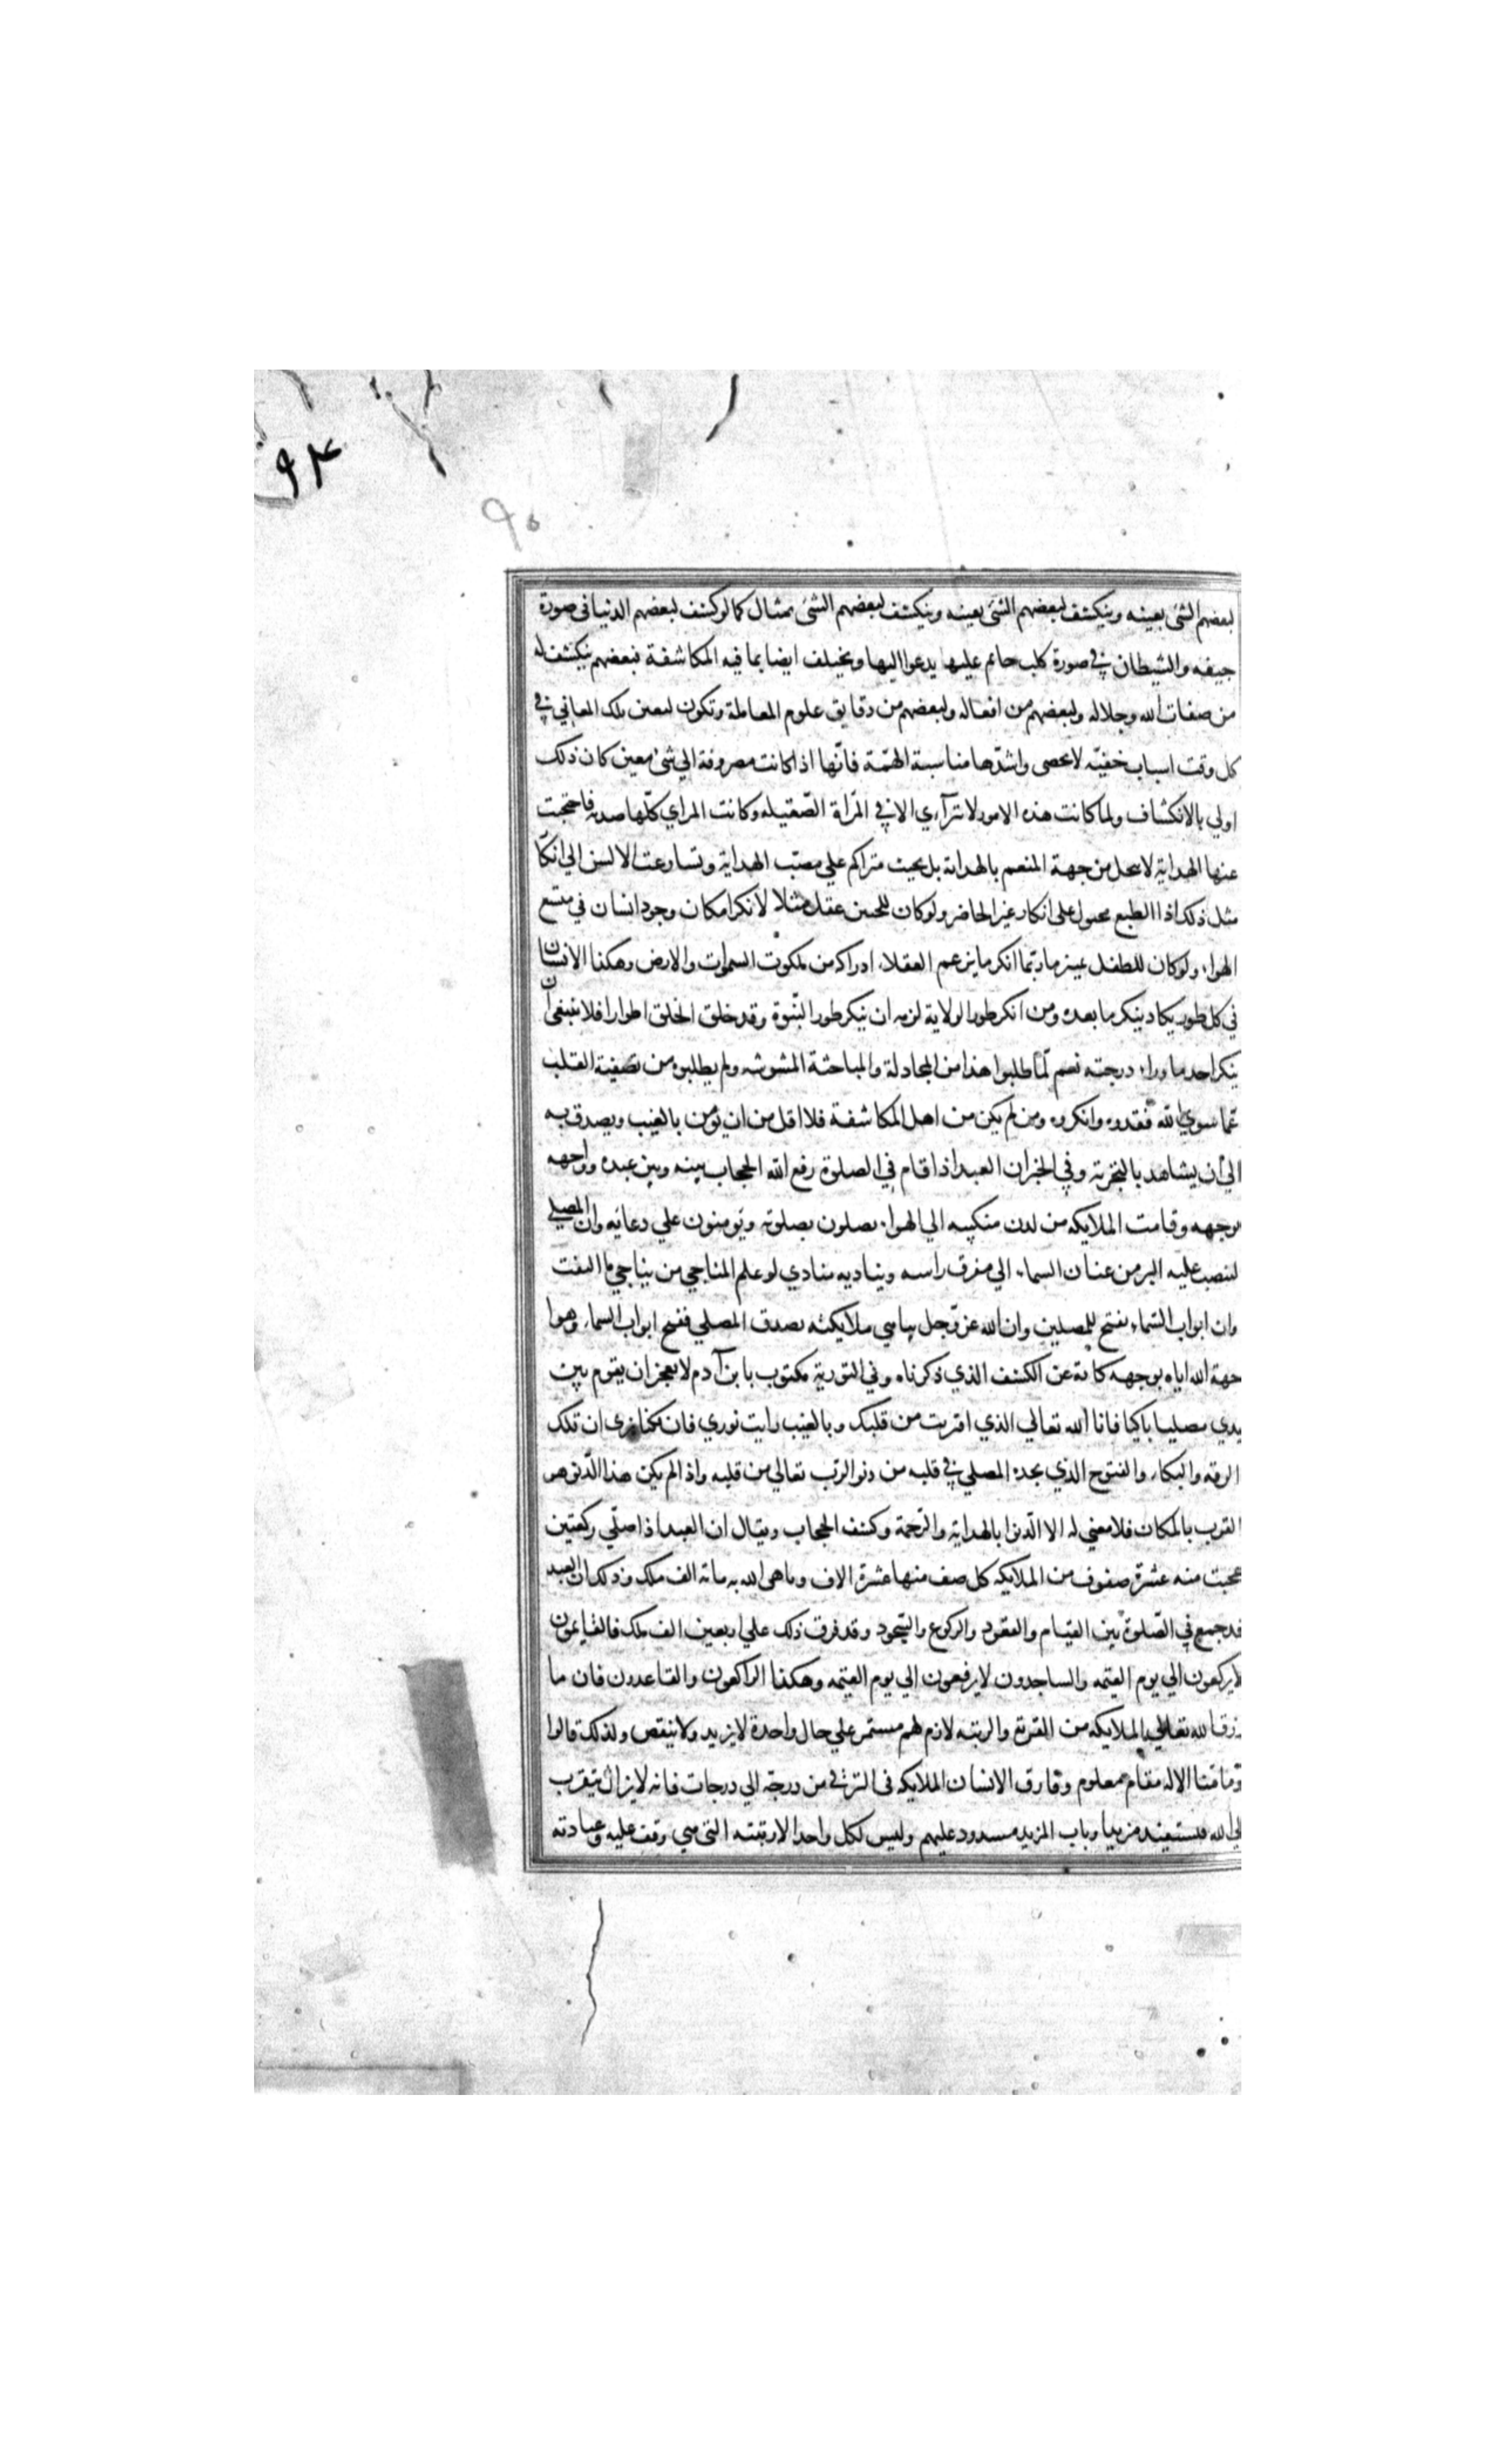 ٩٤
٩٥
لبعضهم الشئ بعينه وينكشف لبعضهم الشئ بعينه وينكشف لبعضهم الشئ بمثال كما لو كشف لبعضهم الدنيا في صورة
جيفه والشيطان في صورة كلب جاثم عليها يدعوا اليها ويختلف ايضا بما فيه المكاشفة فبعضهم ينكشف له
من صفات الله وجلاله ولبعضهم من افعاله ولبعضهم من دقايق علوم المعاملة وتكون لتعين تلك المعاني في
كل وقت اسباب خفيّه لا تحصى واشدّها مناسبة الهمّة فانّها اذا كانت مصروفة الي شئ معين كان ذلك
اولي بالانكشاف ولما كانت هذه الامور لا تترآءي الا في المرّاة الصّقيله وكانت المراي كلّها صديه فاحتجبت
عنها الهداية لا ببخل من جهة المنعم بالهداية بل بخبث متراكم علي مصبّ الهداية وتسارعت الالسن الي انكا
مثل ذلك اذ الطبع مجبول على انكار غير الحاضر ولو كان للجنين عقل مثلا لا نكر امكان وجود انسان في متسع
الهواء ولو كان للطفل تمييز ما ربّما انكر ما يزعم العقلاء ادراكه من ملكوت السموات والارض وهكذا الانسان
في كل طور يكاد ينكر ما بعده ومن انكر طور الولاية لزمه ان ينكر طور النبّوة وقد خلق الخلق اطوارا فلا ينبغي ان
ينكر احد ما وراء درجته نعم لمّا طلبوا هذا من المجادلة والمباحثة المشوشه ولم يطلبوه من تصفية القلب
عمّا سوي الله فقدوه وانكروه ومن لم يكن من اهل المكاشفة فلا اقل من ان يؤمن بالغيب ويصدق به
الي أن يشاهد بالتجربة وفي الخبر ان العبد اذا قام في الصلوة رفع الله الحجاب بينه وبين عبده وواجهه
بوجهه وقامت الملايكه من لدن منكبيه الي الهواء يصلون بصلوته ويؤمنون علي دعائه وان المصلي
لينصب عليه البر من عنان السماء الي مفرق راسه ويناديه منادي لو علم المناجي من يناجي ما التفت
وان ابواب السّماء تفتح للمصلين وان الله عزّ وجل يباهي ملايكته بصدق المصلي ففتح ابواب السماء وموا
جهة الله اياه بوجهه كناية عن الكشف الذي ذكرناه وفي التورية مكتوب يا بن آدم لا تعجز ان تقوم بين
يدي مصليا باكيا فانا الله تعالي الذي اقتربت من قلبك وبالغيب رايت نوري فان كنا نرى ان تلك
الرقه والبكاء والفتوح الذي يجده المصلي في قلبه من دنو الرب تعالي من قلبه واذا لم يكن هذا الدّنو هو
القرب بالمكان فلا معني له الا الدّنو بالهداية والرّحمة وكشف الحجاب ويقال ان العبد اذا صلّي ركعتين
عجبت منه عشرة صفوف من الملايكه كل صف منها عشرة الاف وباهى الله به ماية الف ملك وذلك ان العبد
قد جمع في الصّلوة بين القيام والقعود والركوع والسّجود وقد فرق ذلك علي اربعين الف ملك فالقايمون
لا يركعون الي يوم القيمه والساجدون لا يرفعون الي يوم القيمه وهكذا الراكعون والقاعدون فان ما
رزق الله تعالي الملايكه من القربة والرتبه لازم لهم مستمر علي حال واحدة لا يزيد ولا ينقص ولذلك قالوا
وما منّا الا له مقام معلوم وفارق الانسان الملايكه في الترقي من درجة الي درجات فانه لا يزال يتقرب
الي الله فيستفيد مزيدا وباب المزيد مسدود عليهم وليس لكل واحد الا رتبته التي هي وقف عليه وعبادته